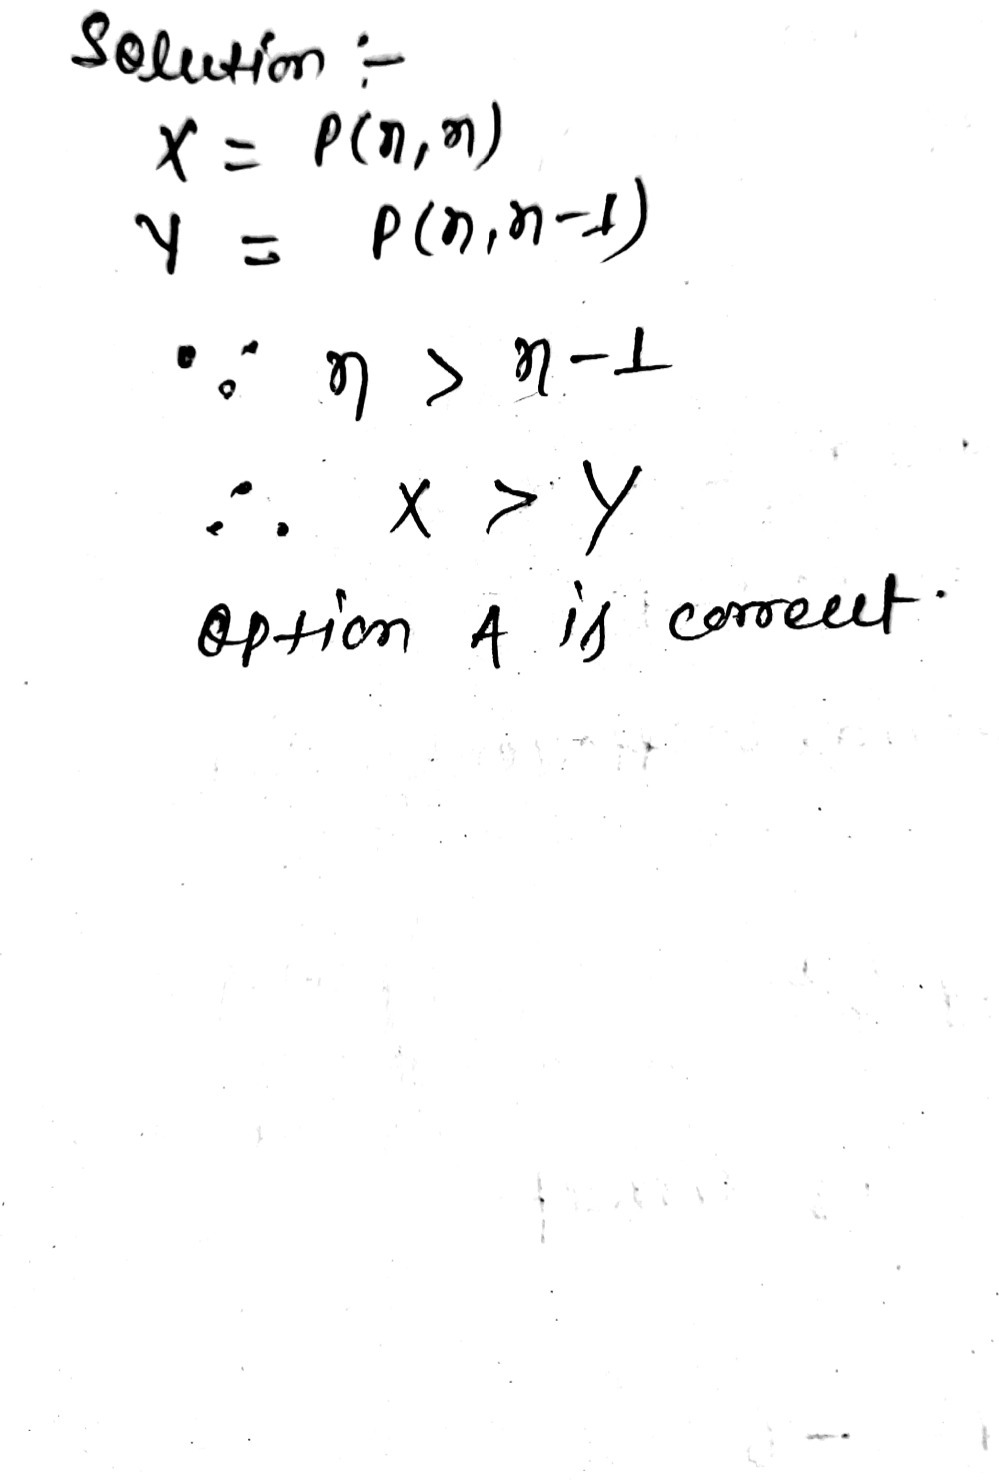 Solution :-
X = P(n,n)
Y = P(n,n-1)
∵ n > n-1
∴ X > Y
Option A is correct.